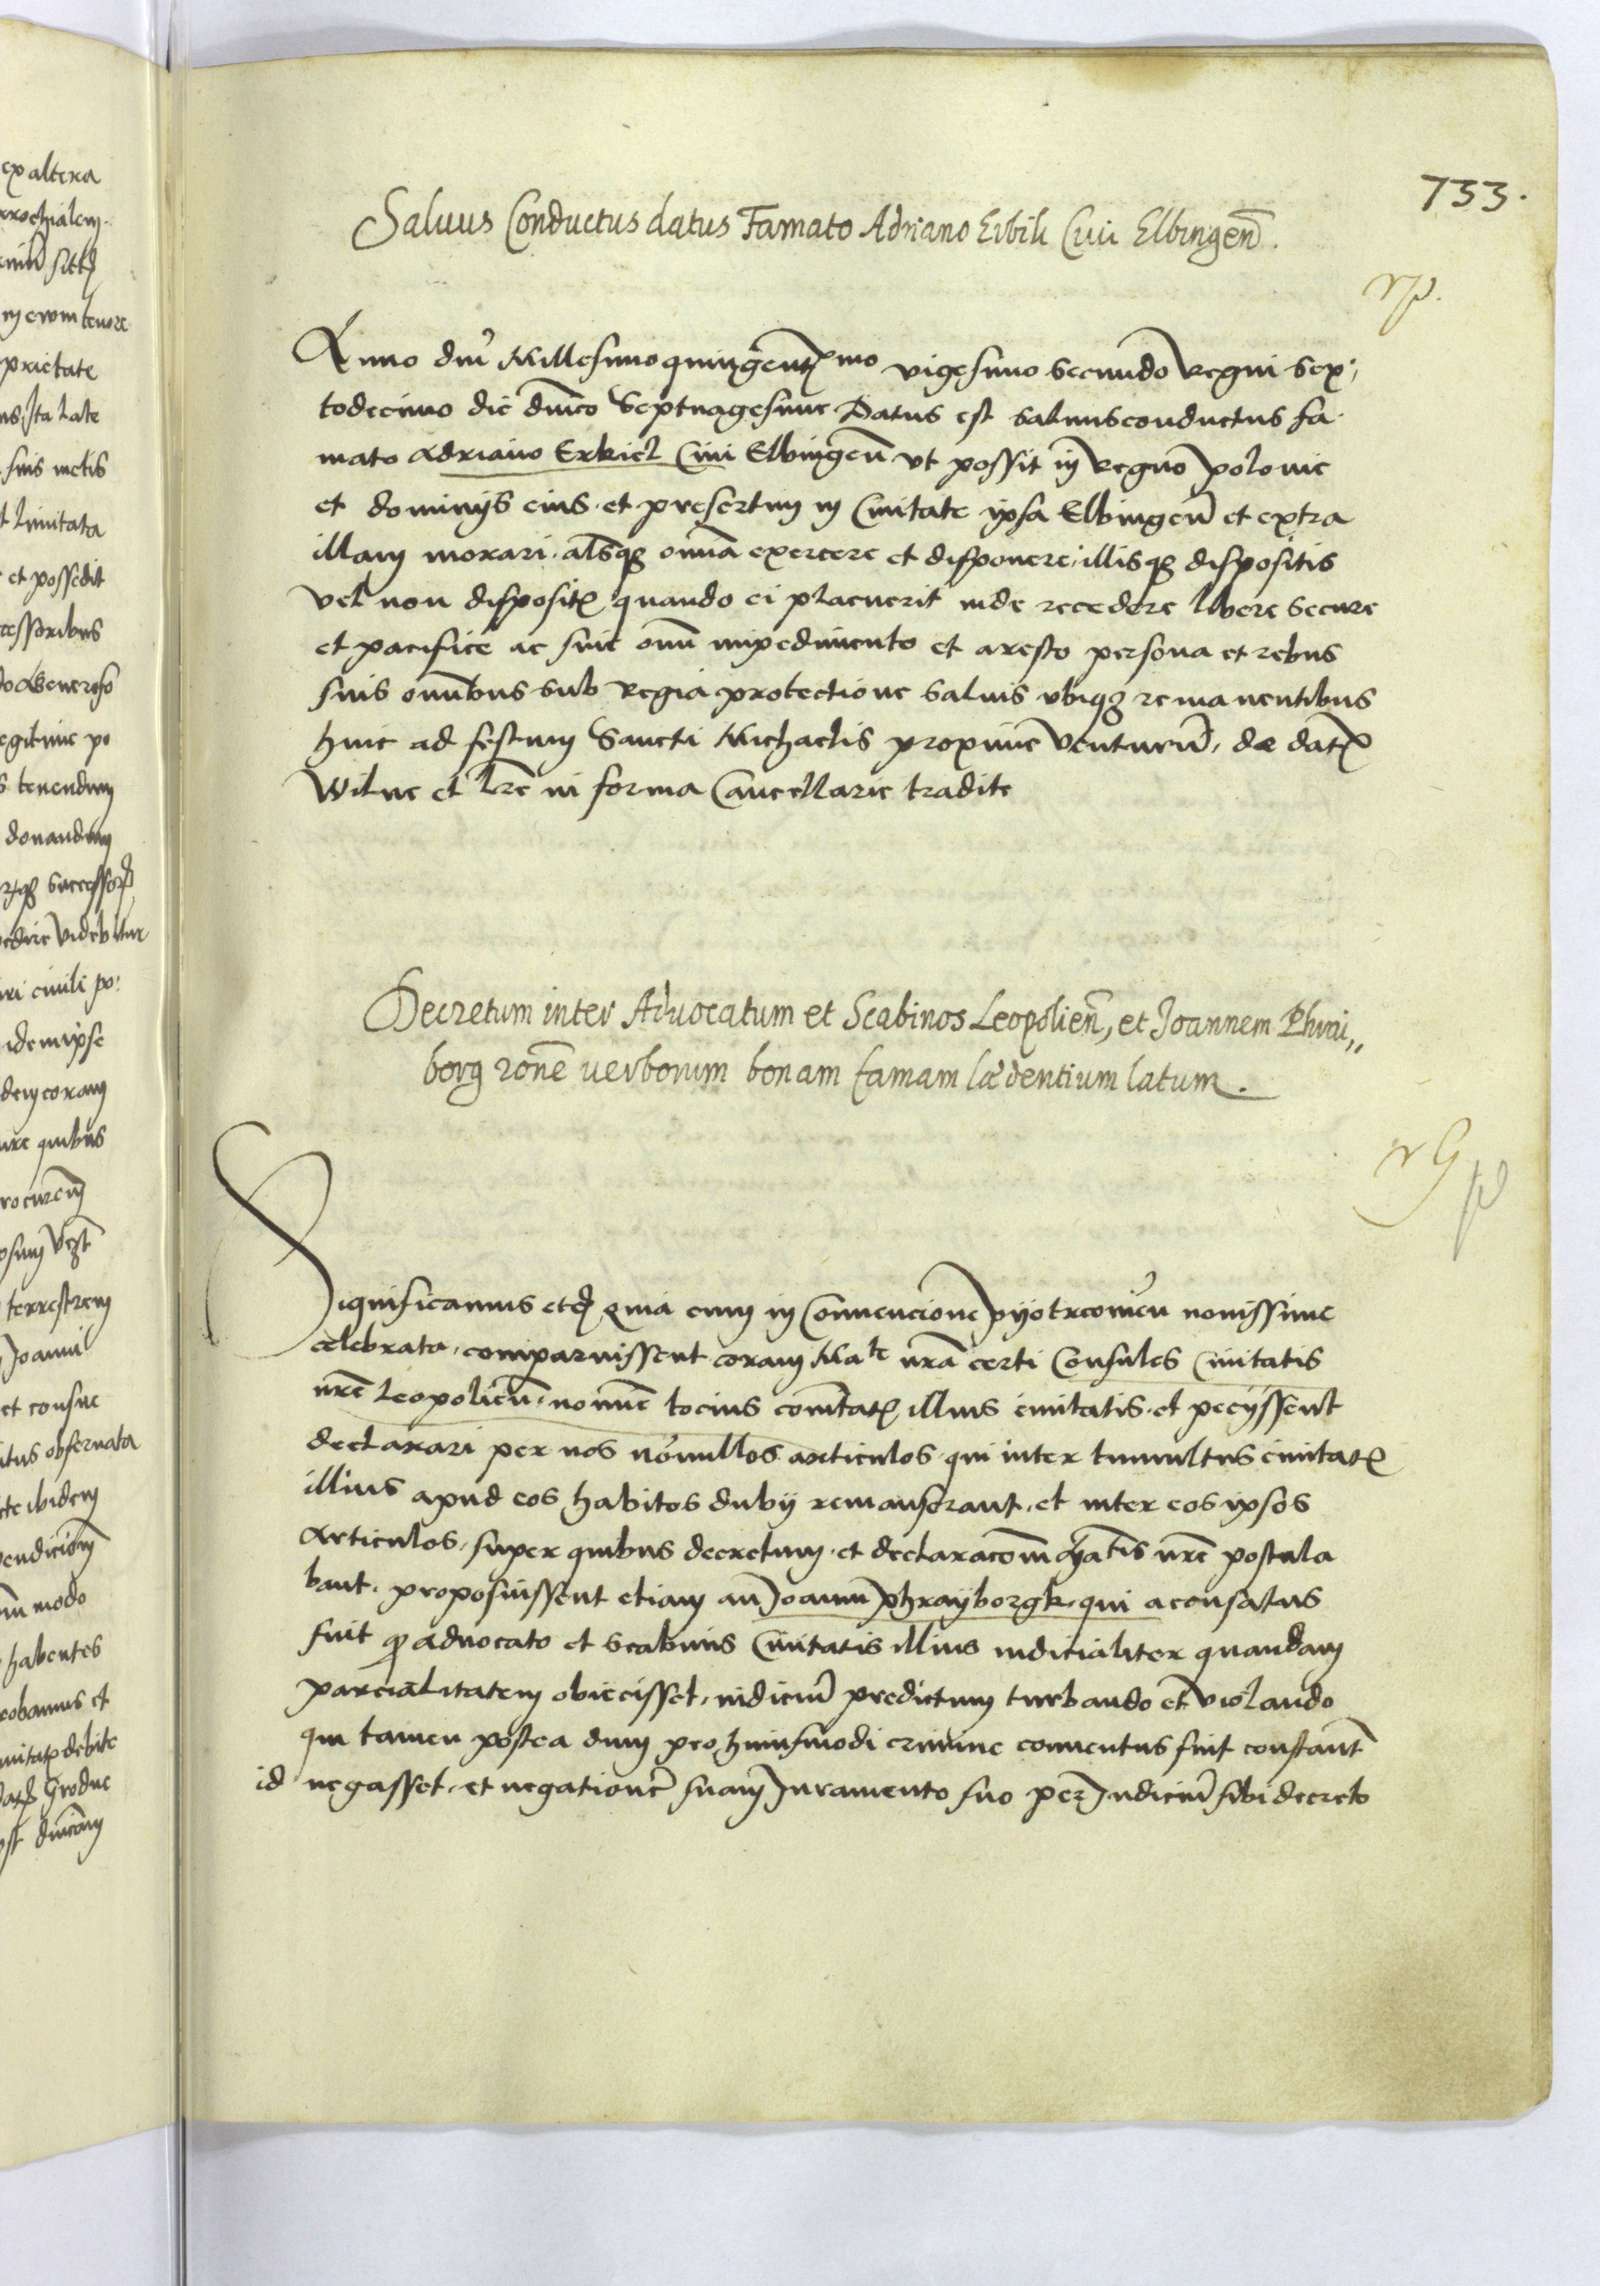 733.
Saluus Conductus datus Famato Adriano Erbili Ciui Elbingen̄.
Anno dn̄i Millesimo quingentꝭmo vigesimo secundo Regni sex,
todecimo die dn̄ico Septuagesime Datus est saluusconductus fa
mato Adriano Erkiel Ciui Elbingen̄ vt possit in Regno polonie
et dominijs eius et presertim in Ciuitate ipsa Elbingen̄ et extra
illam morari. alsq; om̄ia exercere et disponere, illisq; dispositis
vel non dispositꝭ quando ei placuerit inde recedere libere secure
et pacifice ac sine om̄i impedimento et aresto persona et rebus
suis om̄ibus sub Regia protectione saluis vbiq; remanentibus
hinc ad festum Sancti Michaelis proxime venturū, dæ datꝭ
Wilne et lr̄e in forma Cancellarie tradite
Decretum inter Aduocatum et Scabinos Leopolien̄, et Joannem Phrai„
borg rōne verborum bonam famam lædentium latum.
Significamus etc̄ Quia cum in Conuencione pyotrcouien̄ nouissime
celebrata, comparuissent coram Mate nr̄a certi Consules Ciuitatis
nr̄e Leopolien̄, nomine tocius com̄itatꝭ illius ciuitatis. et pecyssent
declarari per nos nōnullos articulos qui inter tumultus ciuitatꝭ
illius apud eos habitos dubij remanserant, et inter eos ipsos
Articulos, super quibus decretum et declaracōm M̄atis nr̄e postula
bant. proposuissent etiam an Joann̄ phrayborgk, qui aconsatus
fuit ꝓ aduocato et scabinis Ciuitatis illius iudicialiter quandam
parcialitatem obiecisset, iudiciū predictum turbando et violando
qui tamen postea dum pro huiusmodi crimine conuentus fuit constan̄t
id negasset, et negationē suam Juramento suo per Judiciū sibi decreto
ex altera
prietate
Ita late
suis metis
limitata
et possedit
cessoribus
tenendum
donandum
videbitur
idem ipse
coram
quibus
terrestrem
et consue
obseruata
ibidem
modo
habentes
debite
Grodne